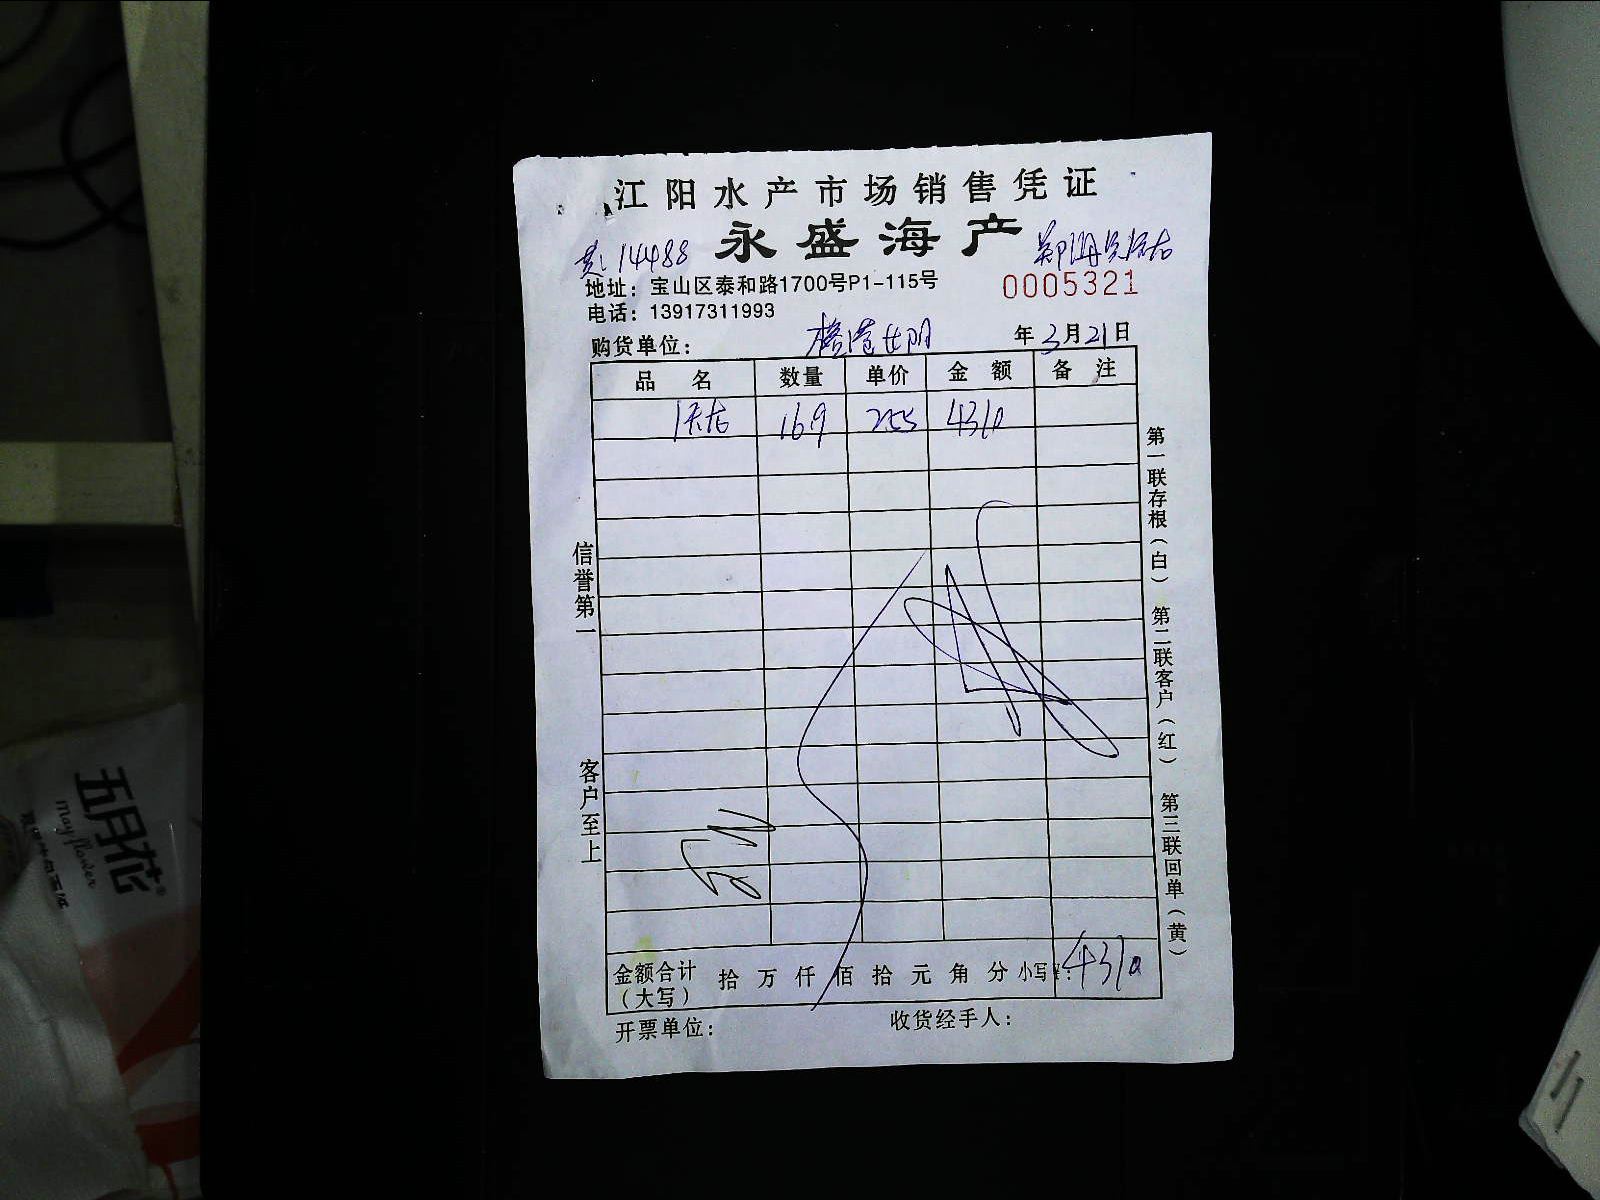 江阳水产市场销售凭证
永盛海产
14488
0005321
地址：宝山区泰和路1700号P1-115号
电话：13917311993
购货单位：
年3月21日
品名 数量 单价 金额 备注
169 255 4310
信誉第一
客户至上
第一联存根（白） 第二联客户（红） 第三联回单（黄）
金额合计（大写） 拾万仟佰拾元角分 小写 4310
开票单位： 收货经手人：
五月花
may flower